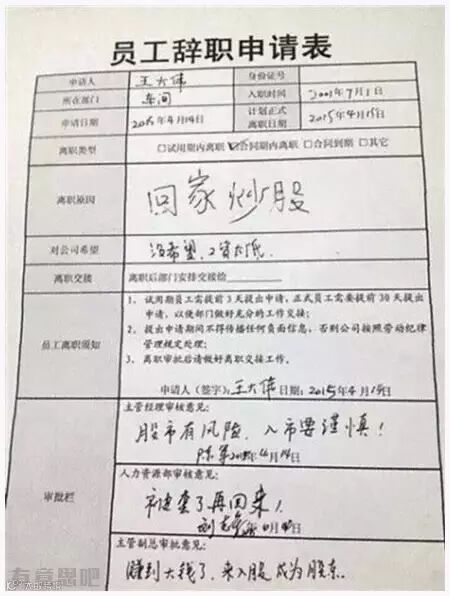 员工辞职申请表
申请人 王大伟 身份证号
所在部门 车间 入职时间 2001年7月1日
申请日期 2015年4月14日 计划正式离职日期 2015年4月15日
离职类型 □试用期内离职 ☑合同期内离职 □合同到期 □其它
离职原因 回家炒股
对公司希望 没希望,工资太低.
离职交接 离职后部门安排交接给
员工离职须知
1、试用期员工需提前3天提出申请,正式员工需要提前30天提出
申请,以便部门做好充分的工作交接;
2、提出申请期间不得传播任何负面信息,否则公司按照劳动纪律
管理规定处理;
3、离职审批后请做好离职交接工作。
申请人(签字):王大伟 日期:2015年4月14日
审批栏
主管经理审核意见:
股市有风险,入市要谨慎!
陈军 4月14日
人力资源部审核意见:
再回来!
主管副总审批意见:
赚到大钱了,来入股成为股东.
有意思吧